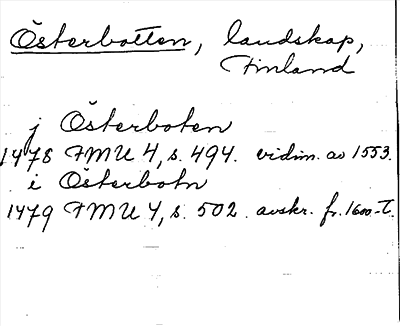 Österbotten, landskap,
Finland
j Österboten
1478 FMU 4, s. 494. vidim. av 1553.
i Österbotn
1479 FMU 4, s. 502. avskr. fr. 1600-t.